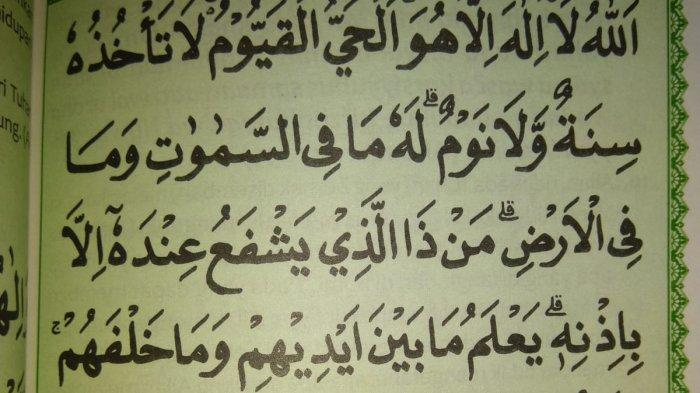 اَللّٰهُ لَآ اِلٰهَ اِلَّا هُوَ الْحَيُّ الْقَيُّوْمُ ەۚ لَا تَأْخُذُهٗ
سِنَةٌ وَّلَا نَوْمٌۗ لَهٗ مَا فِى السَّمٰوٰتِ وَمَا
فِى الْاَرْضِۗ مَنْ ذَا الَّذِيْ يَشْفَعُ عِنْدَهٗٓ اِلَّا
بِاِذْنِهٖۗ يَعْلَمُ مَا بَيْنَ اَيْدِيْهِمْ وَمَا خَلْفَهُمْۚ